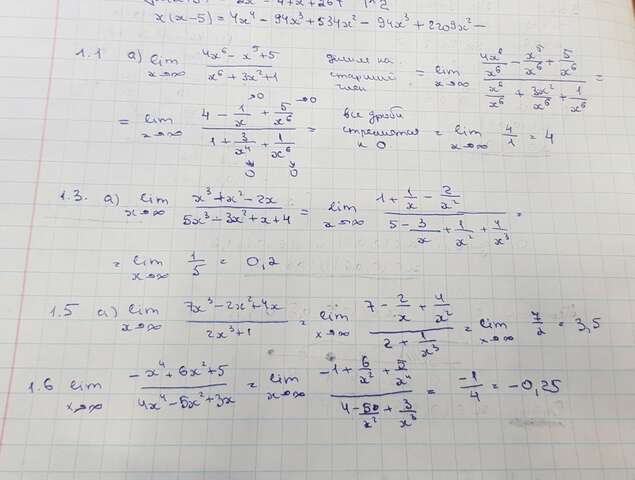 -2x - 4 + x + 26 +
x(x-5) = 4x⁴ - 94x³ + 534x² - 94x³ + 2209x² -
1.1 а) lim x→∞ (4x⁶ - x⁵ + 5)/(x⁶ + 3x² + 1) делим на старший член = lim x→∞ (4x⁶/x⁶ - x⁵/x⁶ + 5/x⁶)/(x⁶/x⁶ + 3x²/x⁶ + 1/x⁶) =
= lim x→∞ (4 - 1/x →0 + 5/x⁶ →0)/(1 + 3/x⁴ →0 + 1/x⁶ →0) = все дроби стремятся к 0 = lim x→∞ 4/1 = 4
1.3. а) lim x→∞ (x³ + x² - 2x)/(5x³ - 3x² + x + 4) = lim x→∞ (1 + 1/x - 2/x²)/(5 - 3/x + 1/x² + 4/x³) =
= lim x→∞ 1/5 = 0,2
1.5 а) lim x→∞ (7x³ - 2x² + 4x)/(2x³ + 1) = lim x→∞ (7 - 2/x + 4/x²)/(2 + 1/x³) = lim x→∞ 7/2 = 3,5
1.6 lim x→∞ (-x⁴ + 6x² + 5)/(4x⁴ - 5x² + 3x) = lim x→∞ (-1 + 6/x² + 5/x⁴)/(4 - 5/x² + 3/x³) = -1/4 = -0,25